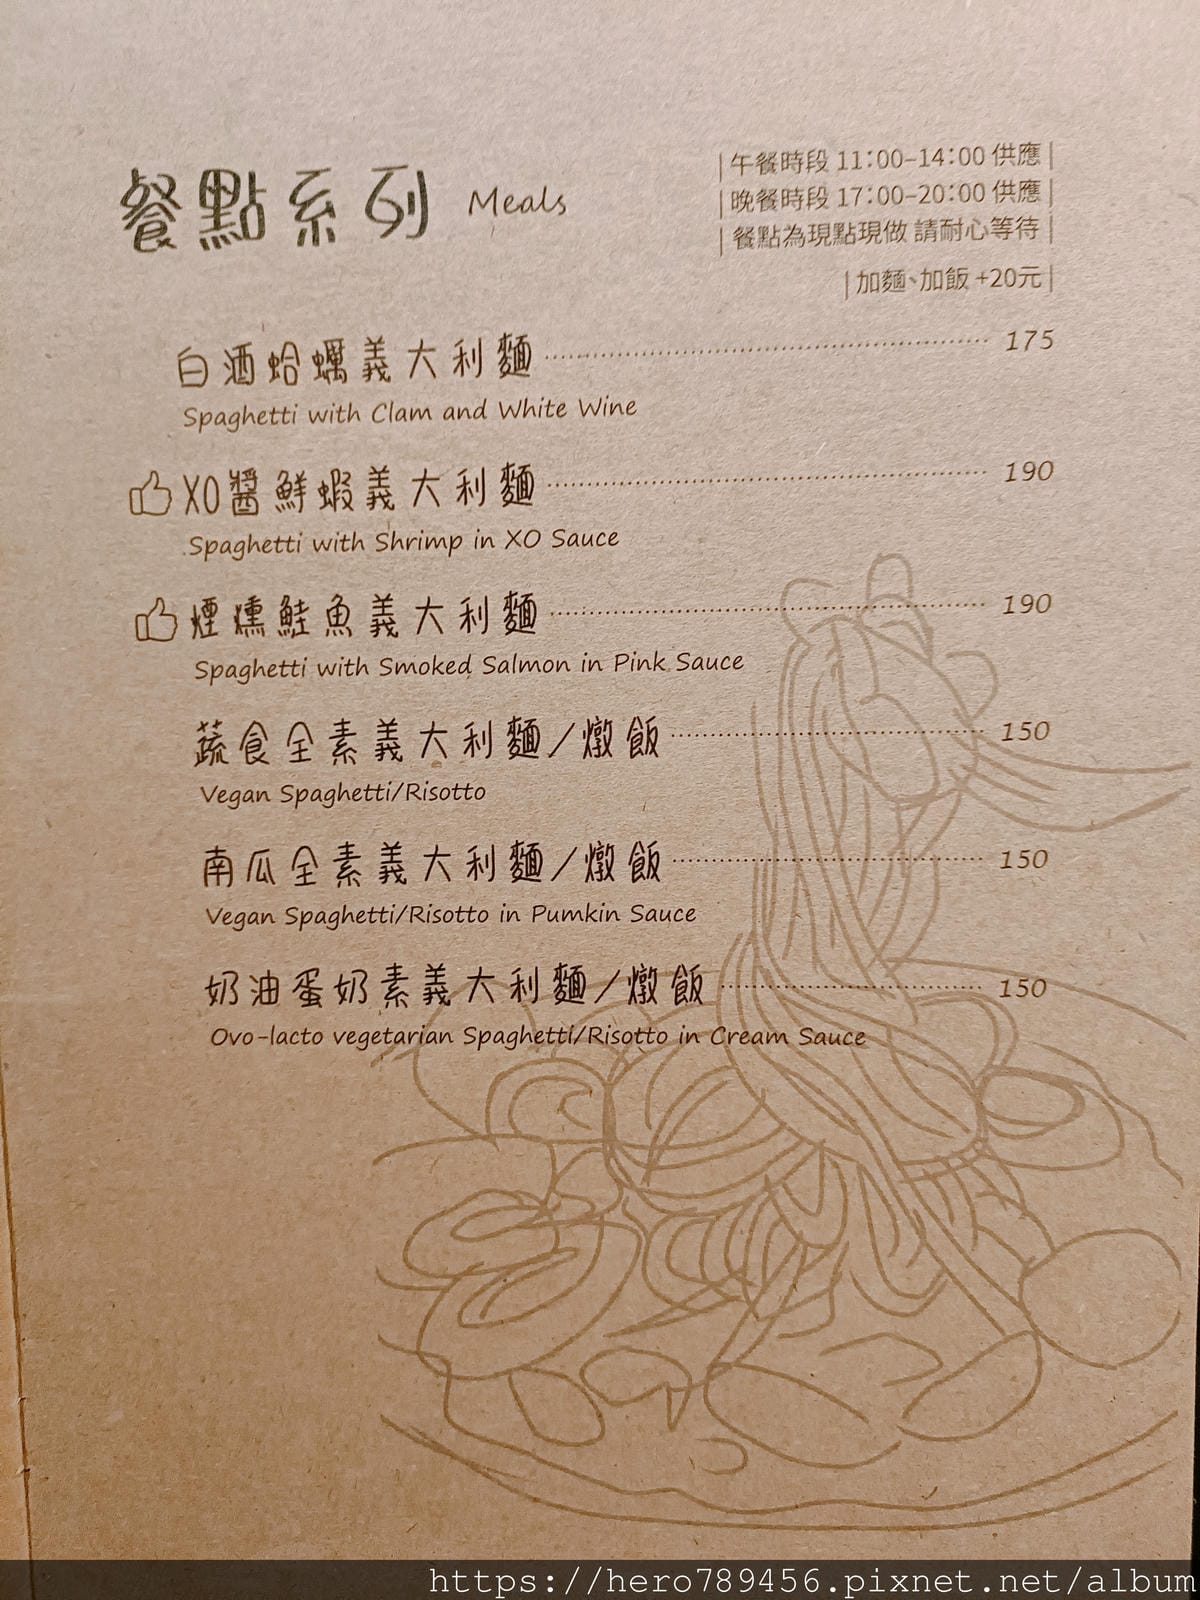 餐點系列 Meals
|午餐時段 11:00-14:00 供應|
|晚餐時段 17:00-20:00 供應|
|餐點為現點現做 請耐心等待|
|加麵、加飯 +20元|
白酒蛤蠣義大利麵 175
Spaghetti with Clam and White Wine
XO醬鮮蝦義大利麵 190
Spaghetti with Shrimp in XO Sauce
煙燻鮭魚義大利麵 190
Spaghetti with Smoked Salmon in Pink Sauce
蔬食全素義大利麵/燉飯 150
Vegan Spaghetti/Risotto
南瓜全素義大利麵/燉飯 150
Vegan Spaghetti/Risotto in Pumkin Sauce
奶油蛋奶素義大利麵/燉飯 150
Ovo-lacto vegetarian Spaghetti/Risotto in Cream Sauce
https://hero789456.pixnet.net/album